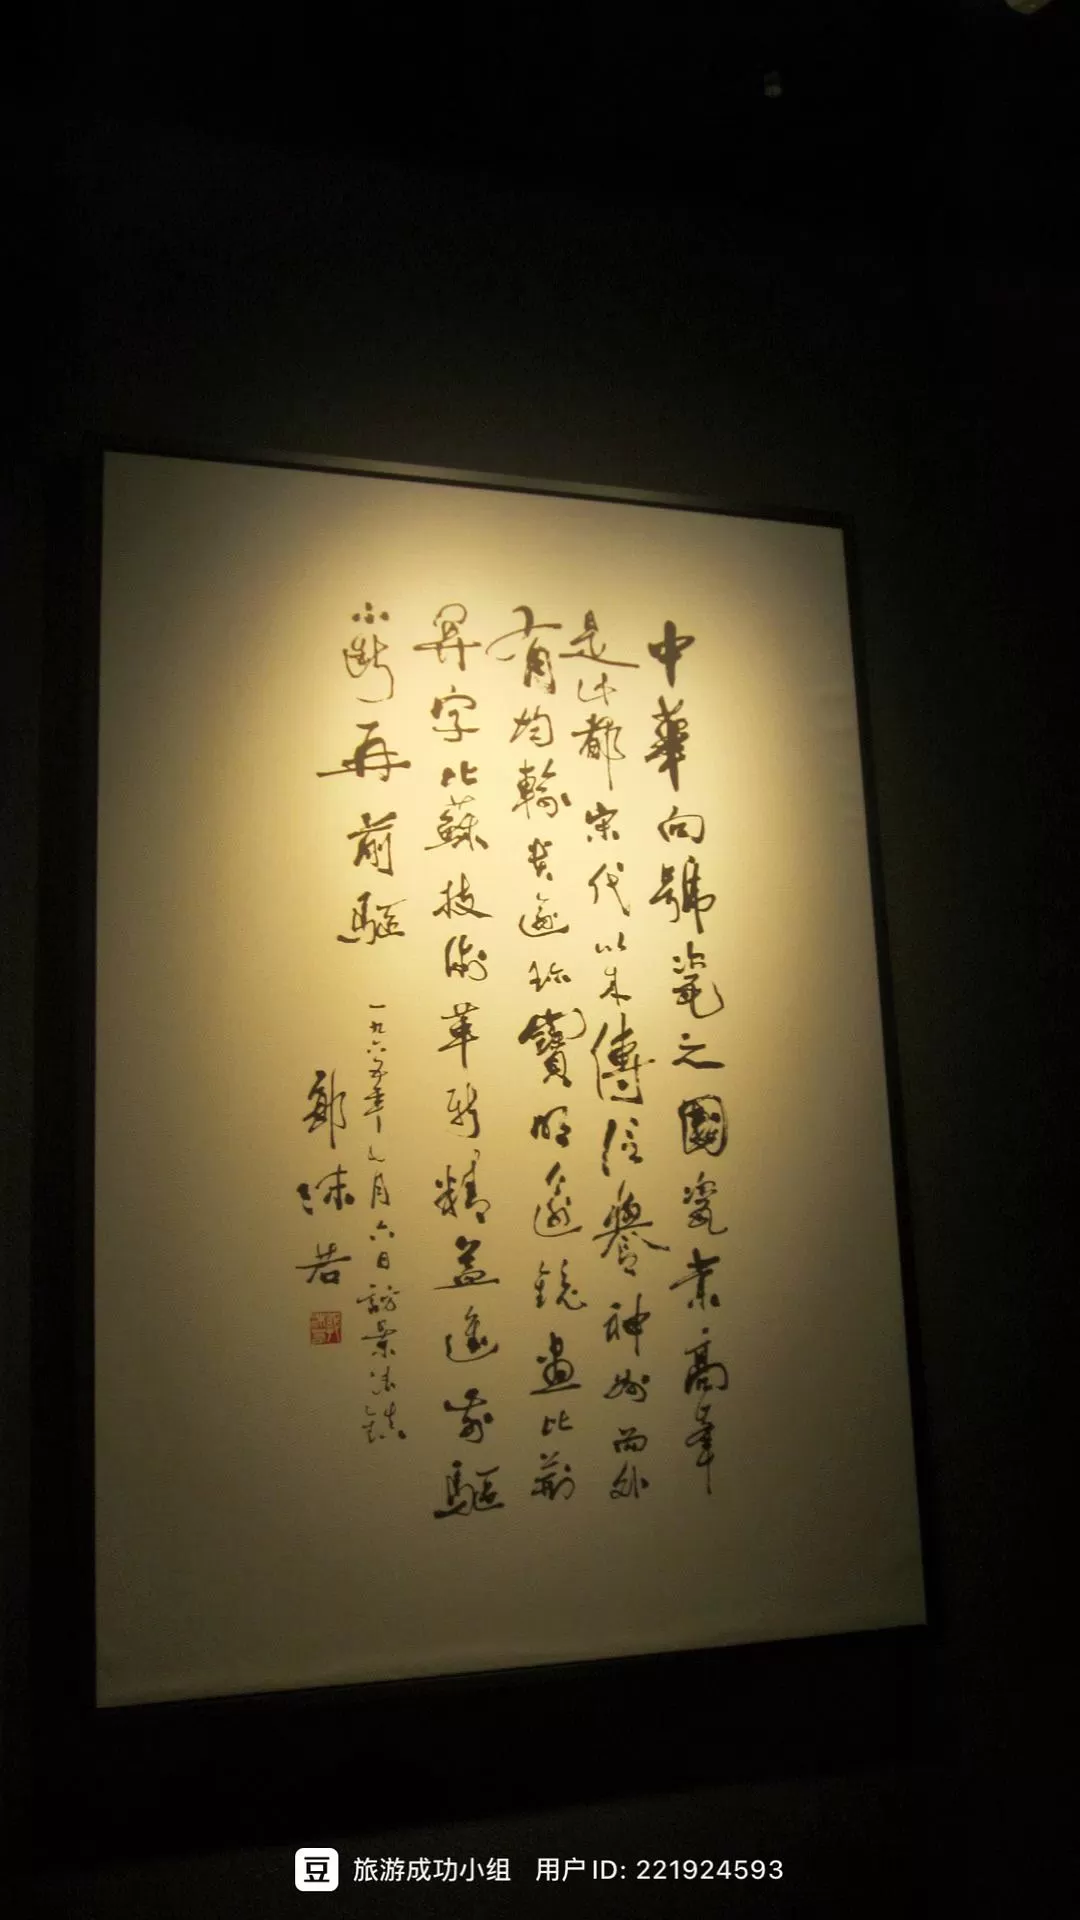 中華向號瓷之國瓷業高峰
是此都宋代以来傳信譽神州而外
有均輸貴逾珍寶明逾鏡畫比荆
関字比蘇技術革新精益進前驅
不斷再前驅
一九六五年七月六日訪景德鎮
郭沫若
豆 旅游成功小组 用户 ID: 221924593